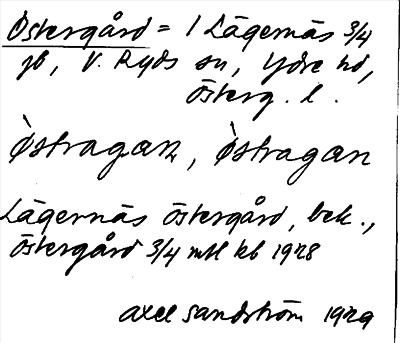 Östergård = 1 Lägernäs 3/4
jb, V. Ryds sn, Ydre hd,
Österg. l.
Ò̀stragaɴ, Ò̀stragan
Lägernäs Östergård, bek.,
Östergård 3/4 mtl kb 1928
Axel Sandström 1929